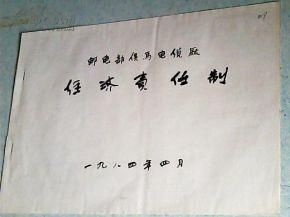 邮电部侯马电缆厂
经济责任制
一九八四年四月